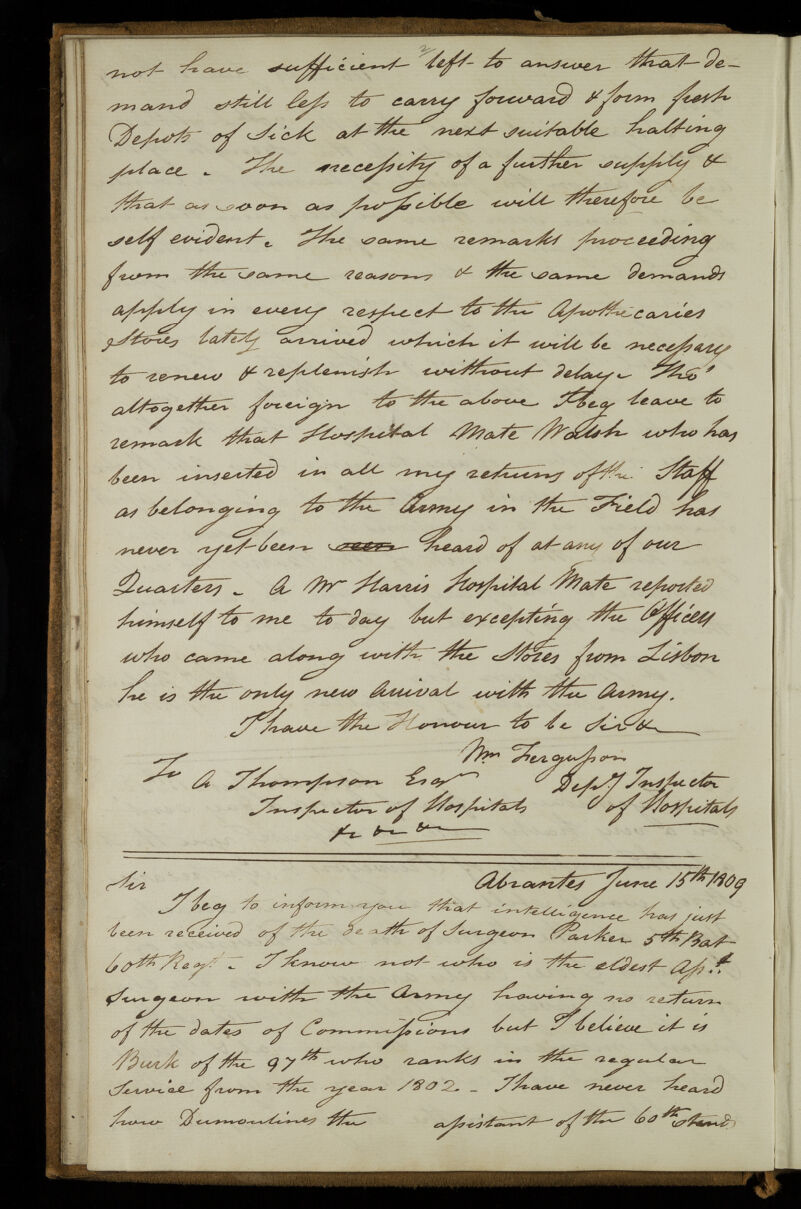 2
not have sufficient left to answer that de-
mand still less to carry forward & form fresh
Depots of Sick at the next suitable halting
place. The necessity of a further supply &
that as soon as possible will therefore be
self evident. The same remarks proceeding
from the same reasons & the same demands
apply in every respect to the Apothecaries
Stores lately arrived which it will be necessary
to renew & replenish without delay. Tho'
altogether foreign to the above I beg leave to
remark that Hospital Mate Walsh who has
been inserted in all my returns of the Staff
as belonging to the Army in the Field has
never yet been seen heard of at any of our
Quarters. A Mr Harris Hospital Mate reported
himself to me to day but excepting the Officers
who came along with the Stores from Lisbon
he is the only new Arrival with the Army.
I have the Honour to be Sir &c
Wm Fergusson
To A Thompson Esqr Depy Inspector
Inspector of Hospitals of Hospitals
&c &c &c
Sir Abrantes June 15th 1809
I beg to inform you that intelligence has just
been received of the death of Surgeon Parker 5th Bat
60th Regt. I know not who is the eldest Asst.
Surgeon with the Army having no return
of the dates of Commissions but I believe it is
Burk of the 97th who ranks in the regular
Service from the year 1802. I have never heard
how Dumoulines the assistant of the 60th stands